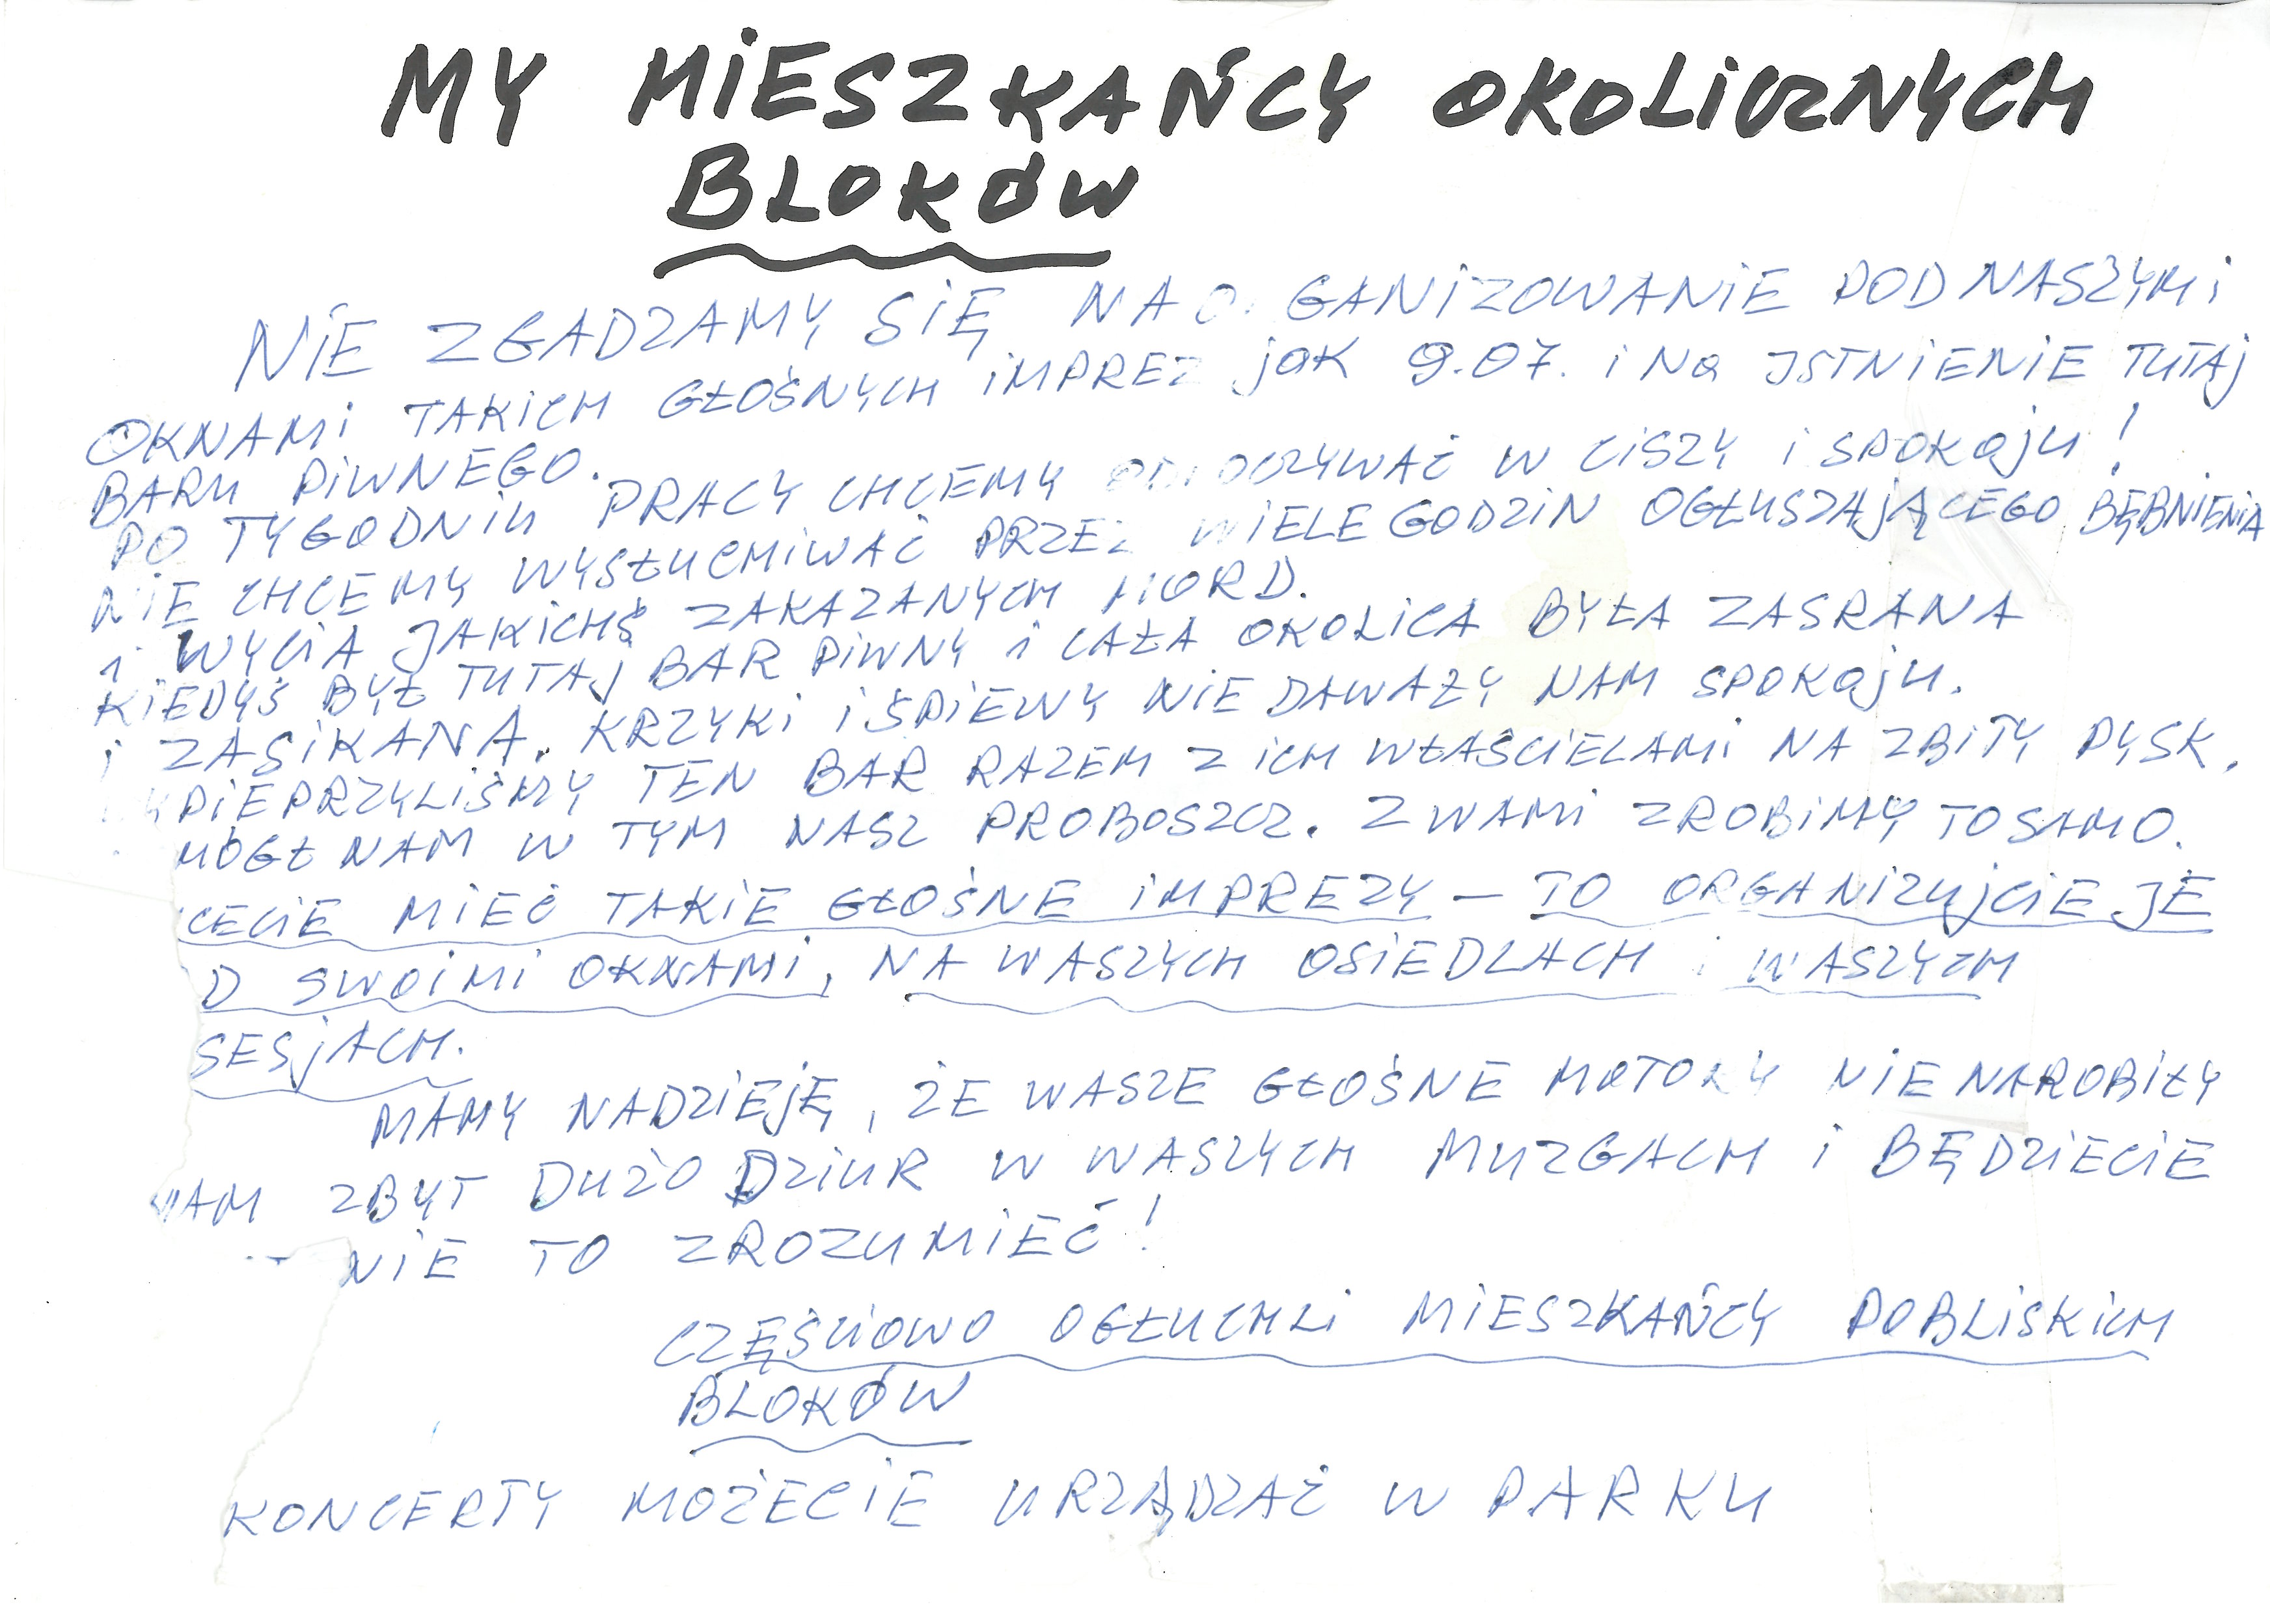 MY MIESZKAŃCY OKOLICZNYCH
BLOKÓW
NIE ZGADZAMY SIĘ NA O GANIZOWANIE POD NASZYMI
OKNAMI TAKICH GŁOŚNYCH IMPREZ jak 9.07. i Na ISTNIENIE TUTAj
BARU PIWNEGO.
PO TYGODNIU PRACY CHCEMY ODPOCZYWAĆ W CISZY i SPOKOjU!
NIE CHCEMY WYSŁUCHIWAĆ PRZEZ WIELE GODZIN OGŁUSZAJĄCEGO BĘBNIENIA
i WYCIA JAKICHŚ ZAKAZANYCH MORD.
KIEDYŚ BYŁ TUTAJ BAR PIWNY i CAŁA OKOLICA BYŁA ZASRANA
i ZASIKANA. KRZYKI i ŚPIEWY NIE DAWAŁY NAM SPOKOjU.
PIEPRZYLIŚMY TEN BAR RAZEM Z ICH WŁAŚCIELAMI NA ZBITY PYSK.
MÓGŁ NAM W TYM NASZ PROBOSZCZ. Z WAMI ZROBIMY TO SAMO.
CECIE MIEĆ TAKIE GŁOŚNE IMPREZY – TO ORGANIZUJCIE JE
D SWOIMI OKNAMI, NA WASZYCH OSIEDLACH i WASZYCH
SESJACH.
MAMY NADZIEJĘ, ŻE WASZE GŁOŚNE MOTORY NIE NAROBIŁY
WAM ZBYT DUŻO DZIUR W WASZYCH MUZGACH i BĘDZIECIE
NIE TO ZROZUMIEĆ!
CZĘŚCIOWO OGŁUCHLI MIESZKAŃCY POBLISKICH
BLOKÓW
KONCERTY MOŻECIE URZĄDZAĆ W PARKU